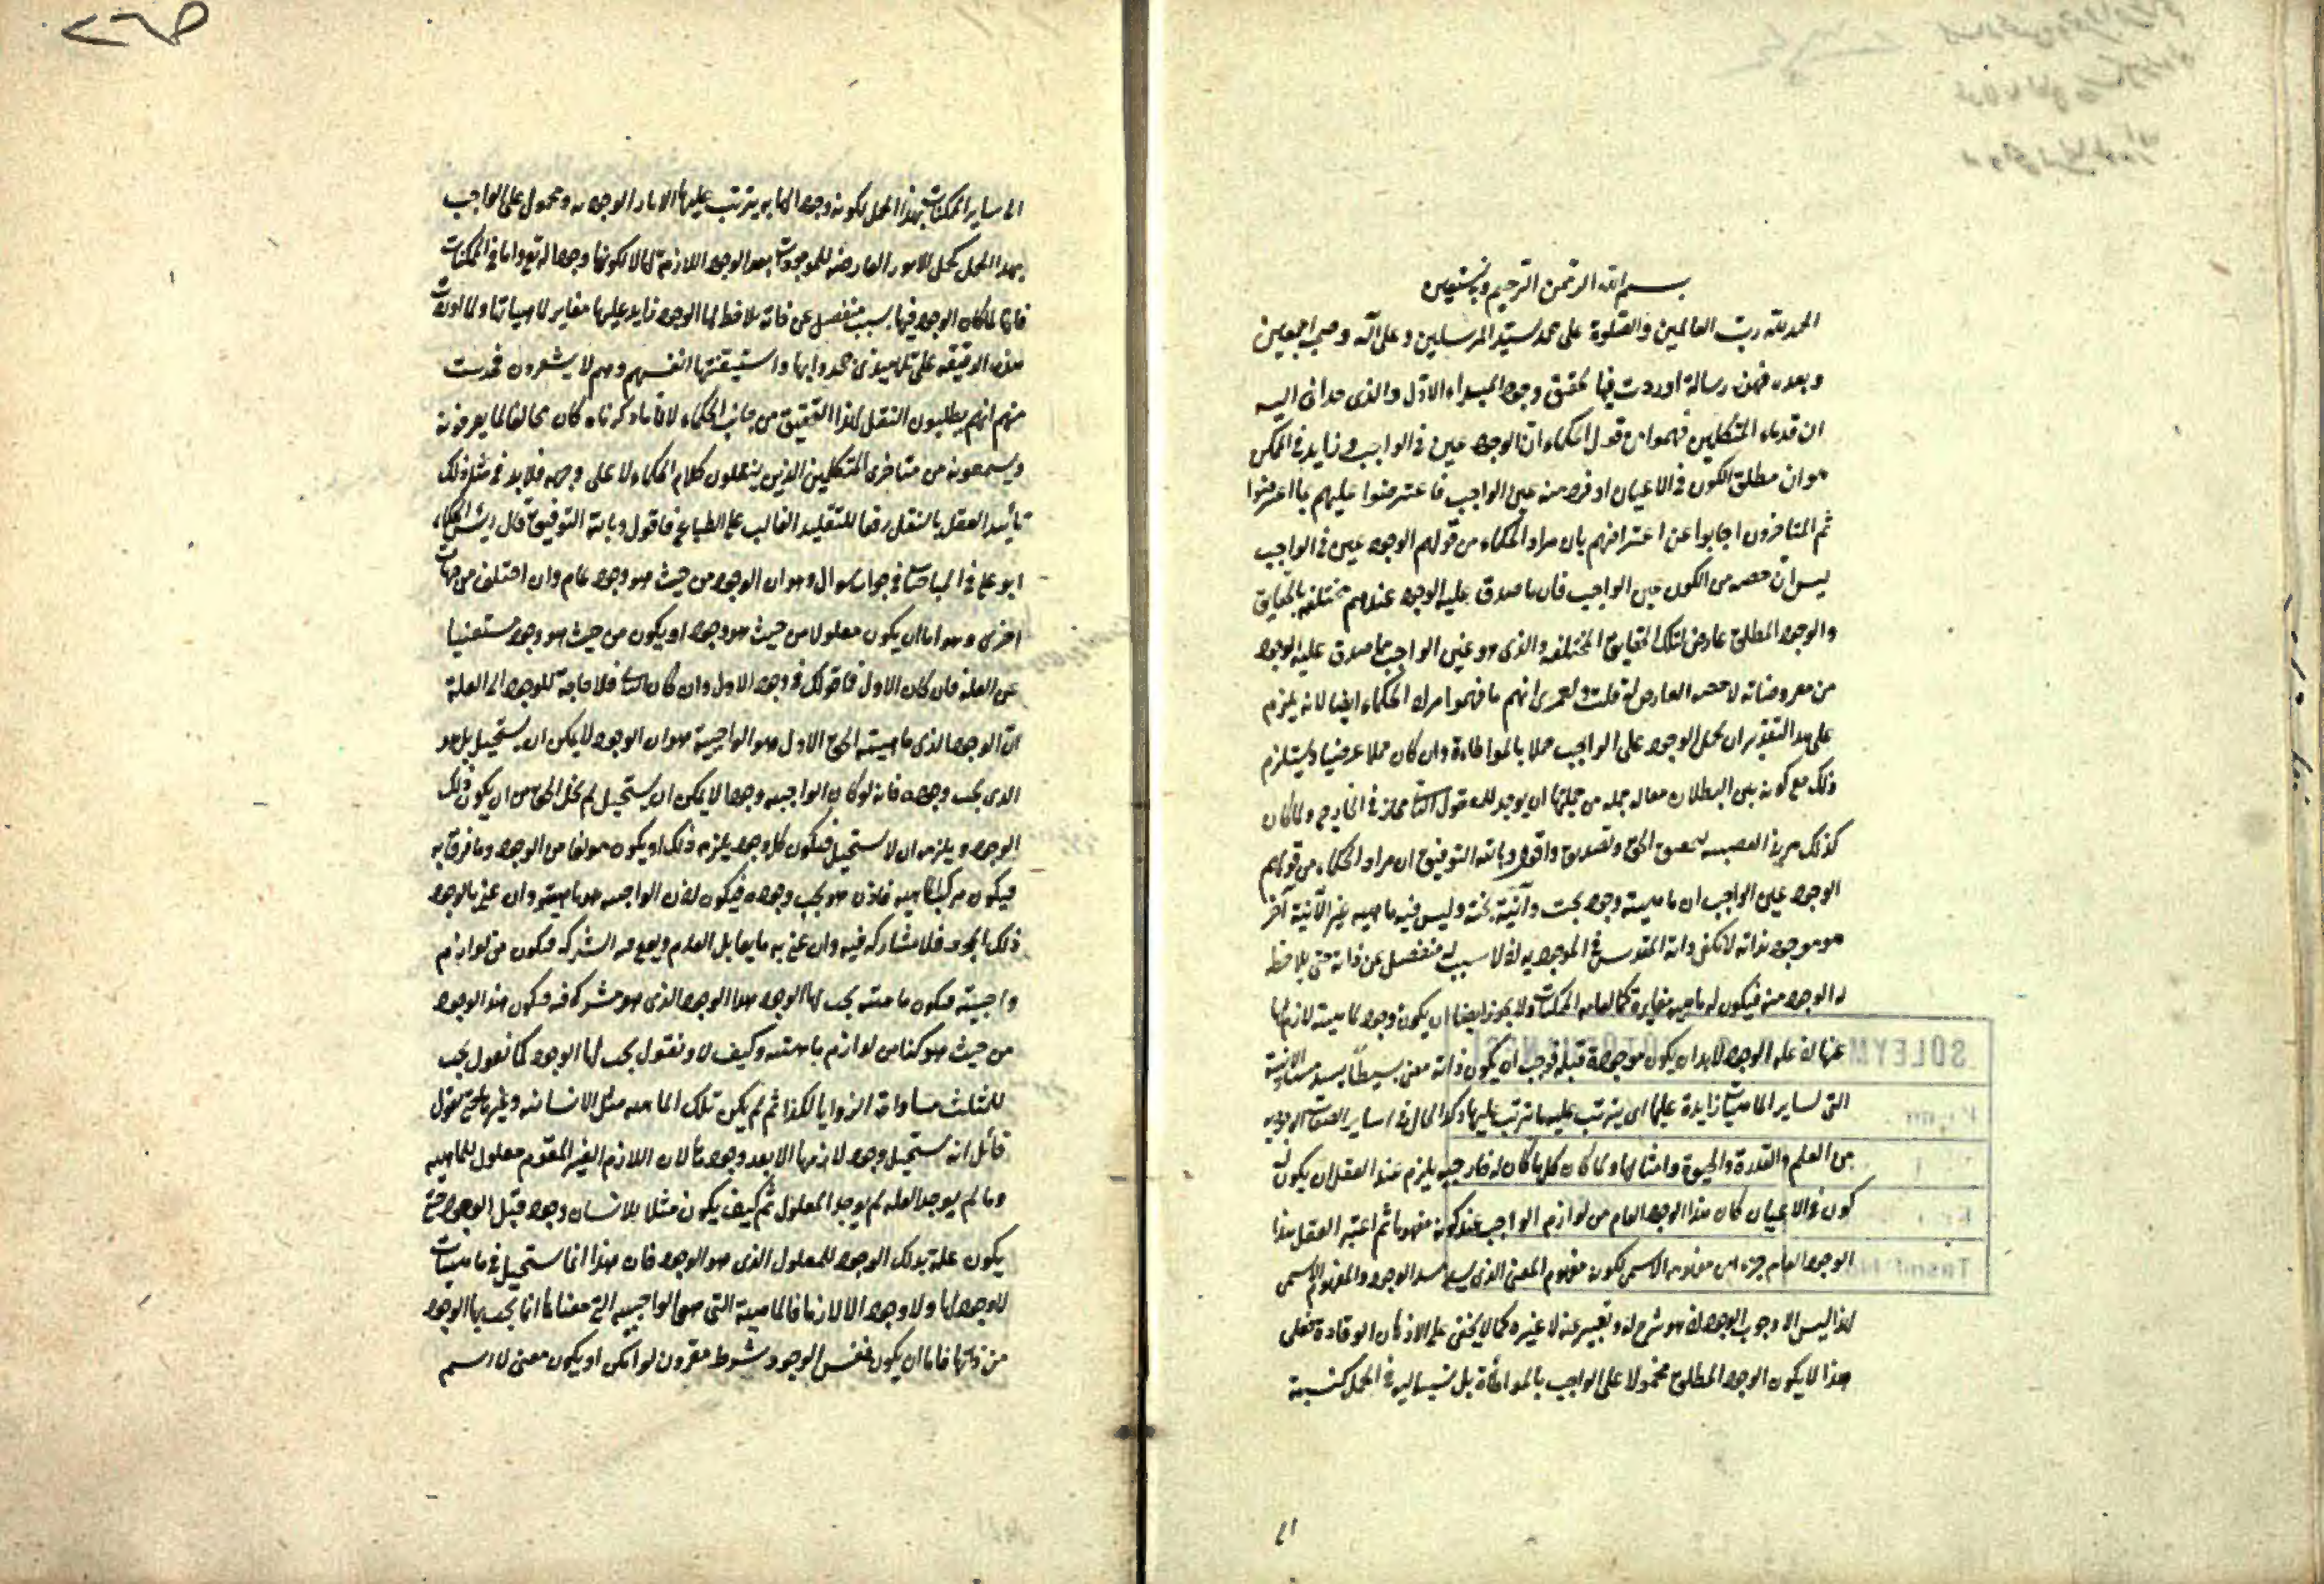 بسم الله الرحمن الرحيم وبه نستعين
الحمد لله رب العالمين والصلوة على محمد سيد المرسلين وعلى آله وصحبه اجمعين
وبعد فهذه رسالة اوردت فيها تحقيق وجود المبداء الاول والذى حدانى اليه
ان قدماء المتكلمين فهموا من قول الحكماء ان الوجود عين فى الواجب وزايد فى الممكن
هو ان مطلق الكون فى الاعيان او فرد منه عين الواجب فاعترضوا عليهم بما اعترضوا
ثم المتاخرون اجابوا عن اعتراضهم بان مراد الحكماء من قولهم الوجود عين فى الواجب
ليس ان حصه من الكون عين الواجب فان ما صدق عليه الوجود عندهم مختلفه بالحقايق
والوجود المطلق عارض لتلك الحقايق المختلفه والذى هو عين الواجب ما صدق عليه الوجود
من معروضاته لا حصه العارض له قلت ولعمرى انهم ما فهموا مراد الحكماء ايضا لانه يلزم
على هذا التقدير ان يحمل الوجود على الواجب حملا بالمواطاءة وان كان حملا عرضيا ويستلزم
ذلك مع كونه بين البطلان من جملتها ان يوجد للمعقول الثانى فى الخارج ولما كان
كذلك الحق واقول وبالله التوفيق ان مراد الحكماء من قولهم
الوجود عين الواجب ان ماهيته وجود بحت وآنية بحتة وليس فيه ماهيه غير الآنية آخر
هو موجود بذاته لا تكفى ذاته المقدس فى الموجوديه اذ لا سبب له منفصل عن ذاته حتى يلاحظ
له الوجود منه فيكون له ماهيه مغايرة كما الممكنات ولا يجوز ايضا ان يكون وجود لماهيته لازم لها
عنها لان عله الوجود لابد ان يكون موجودة قبله فوجب ان يكون ذاته معنى بسيطا يسد مسد الآنية
التى لساير الماهيات زايدة عليها اى يترتب عليه ما يترتب عليها وكذا الحال فى ساير الصفات الوجوديه
من العلم والقدرة والحيوة وامثالها ولما كان كل ما كان له خارجيه يلزم عند العقل ان يكون له
كون فى الاعيان كان هذا الوجود العام من لوازم الواجب عند كونه مفهوما ثم اعتبر العقل هذا
الوجود العام جزء من مفهومه الاسمى لكونه مفهوم المعنى الذى يسد مسد الوجود والمفهوم الاسمى
لهذا ليس الا وجوب الوجود اذ هو شرح له وتعبير عنه لا غيره كما لا يخفى على الاذهان الوقادة فعلى
هذا لا يكون الوجود المطلق محمولا على الواجب بالمواطاءة بل نسبته اليه فى الحمل كنسبته
الى
الى ساير الممكنات بهذا الحمل لكونه وجودا لها به يترتب عليها الاثار الوجوديه ومحمول على الواجب
بهذا الحمل كحمل الامور العارضه للموجودات بعد الوجود اللازمة لها لا لكونها وجودا له تع واما فى الممكنات
فانها لما كان الوجود فيها بسبب منفصل عن ذاته يلاحظ لها الوجود زايد عليها مغاير لماهياتها ولما
هذه الدقيقه على تلاميذى جحدوا بها واستيقنتها انفسهم وهم لا يشعرون فحدست
منهم انهم يطلبون النقل لهذا التحقيق من جانب الحكماء لان ما ذكرناه كان مخالفا لما يعرفونه
ويسمعونه من متاخرى المتكلمين الذين ينقلون كلام الحكماء لا على وجهه فلابد فى مثل ذلك
تأييد العقل بالنقل رفعا للتقليد الغالب على الطبايع فاقول وبالله التوفيق قال رئيس الحكماء
ابو على فى المباحثات فى جواب سوال وهو ان الوجود من حيث هو وجود عام وان اختلف من جهات
اخرى وهو اما ان يكون معلولا من حيث هو وجود او يكون من حيث هو وجود مستغنيا
عن العلة فان كان الاول فما قولك فى وجود الاول وان كان الثانى فلا حاجة للوجود الى العلة
ان الوجود الذى ماهيته الحق الاول هو الواجبية هو ان الوجود لا يمكن ان يستحيل بل هو
الذى يجب وجوده فانه لو كان الواجبيه وجودا لا يمكن ان يستحيل لم يخل الحق من ان يكون ذلك
الوجود ويلزمه ان لا يستحيل فيكون كل وجود يلزمه ذلك او يكون مولفا من الوجود وما فرق به
فيكون مركب الماهيه فاذن هو يجب وجوده فيكون لان الواجبيه هو ماهيته وان عنى بالوجود
ذلك المجرد فلا مشاركه فيه وان عنى به ما يقابل العدم ويقع فيه الشركه فيكون من لوازم
واجبيته فيكون ماهيته يجب لها الوجود هذا الوجود الذى هو مشركه فيه فيكون هذا الوجود
من حيث هو كذا من لوازم ماهيته وكيف لا ونقول يجب لها الوجود كما نقول يجب
للمثلث مساواة الزوايا لكذا ثم لم يكن تلك الماهيه مثل الانسانيه وغيرها حتى يقول
قائل انه يستحيل وجود لازمها الا بعد وجودها لان اللازم الغير المقوم معلول للماهيه
وما لم يوجد العله لم يوجد المعلول ثم كيف يكون مثلا للانسان وجود قبل الوجود حتى
يكون علة بذلك الوجود للمعلول الذى هو الوجود فان هذا انما يستحيل فى ماهيات
لا وجود لها ولا وجود الا لازما فالماهية التى هى الواجبيه التى معناها انما يجب بها الوجود
من ذاتها فاما ان يكون نفس الوجود بشرط مقرون لو امكن او يكون معنى لا اسم